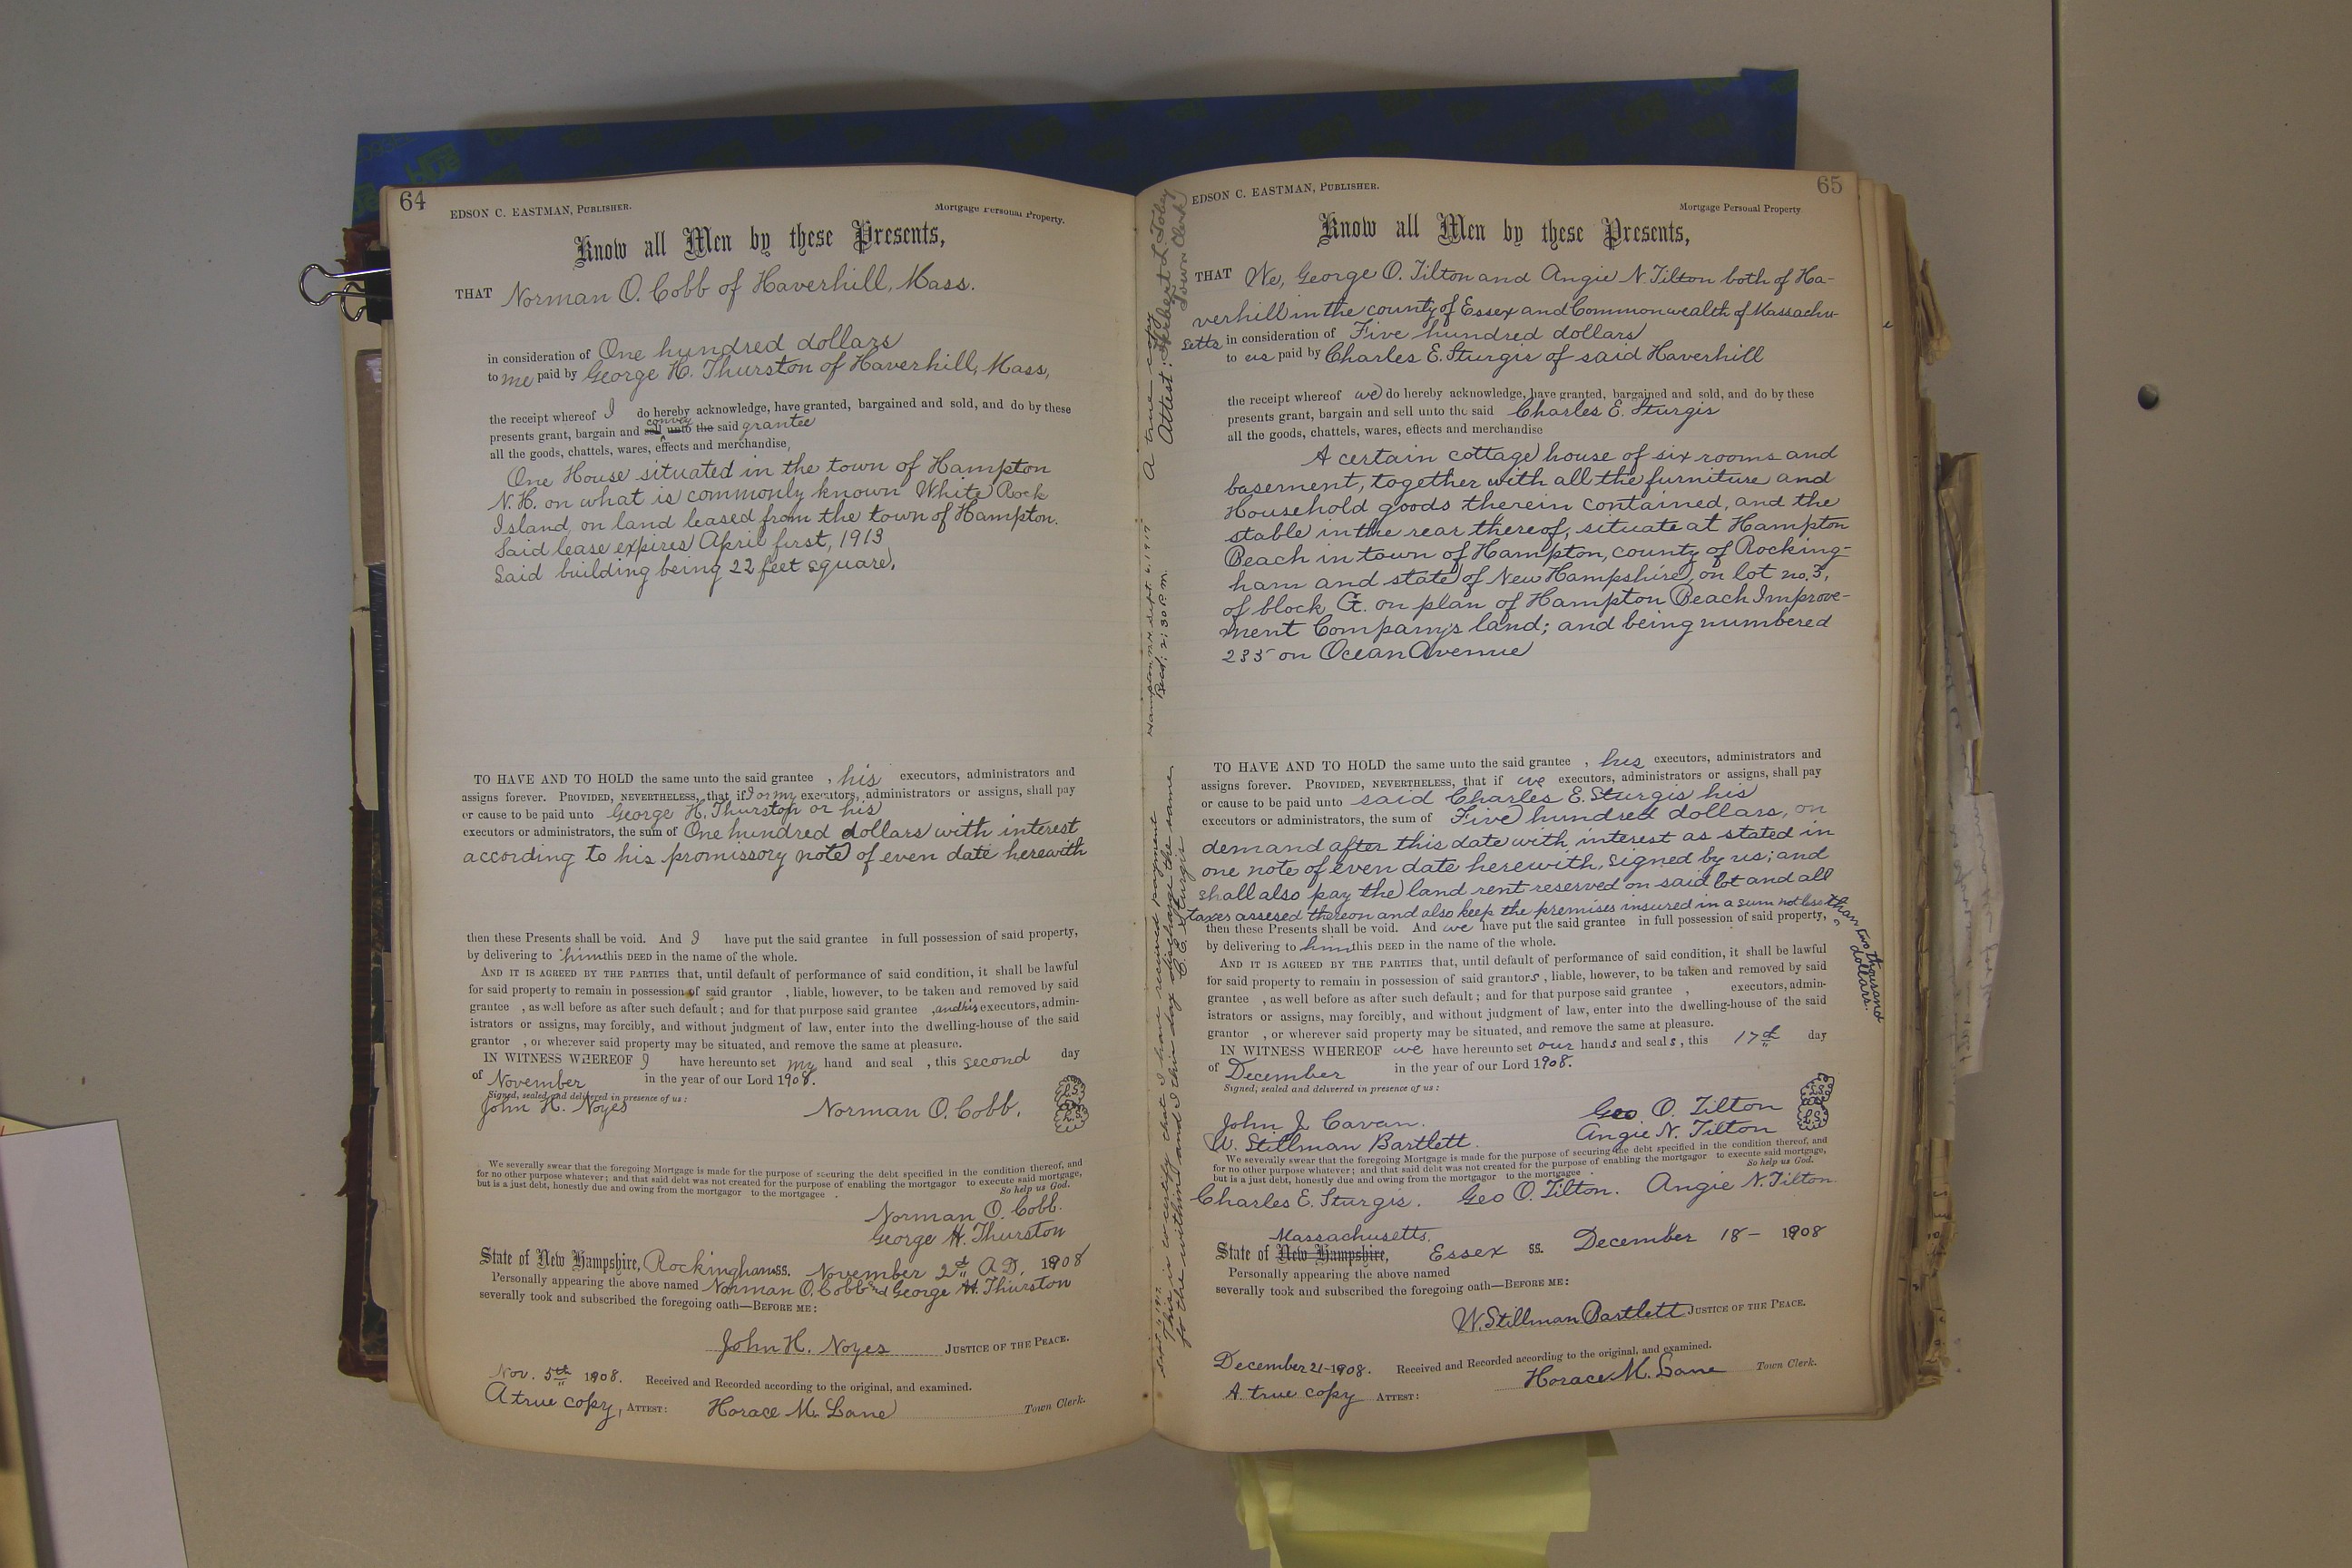 64
EDSON C. EASTMAN, PUBLISHER.
Mortgage Personal Property.
Know all Men by these Presents,
THAT Norman O. Cobb of Haverhill, Mass.
in consideration of One hundred dollars
to me paid by George H. Thurston of Haverhill, Mass,
the receipt whereof I do hereby acknowledge, have granted, bargained and sold, and do by these
convey
presents grant, bargain and sell unto the said grantee
all the goods, chattels, wares, effects and merchandise,
One House situated in the town of Hampton
N.H. on what is commonly known White Rock
Island, on land leased from the town of Hampton.
Said lease expires April first, 1913
Said building being 22 feet square.
TO HAVE AND TO HOLD the same unto the said grantee , his executors, administrators and
assigns forever. PROVIDED, NEVERTHELESS, that if I or my executors, administrators or assigns, shall pay
or cause to be paid unto George H. Thurston or his
executors or administrators, the sum of One hundred dollars with interest
according to his promissory note of even date herewith
then these Presents shall be void. And I have put the said grantee in full possession of said property,
by delivering to him this DEED in the name of the whole.
AND IT IS AGREED BY THE PARTIES that, until default of performance of said condition, it shall be lawful
for said property to remain in possession of said grantor , liable, however, to be taken and removed by said
grantee , as well before as after such default; and for that purpose said grantee , and his executors, admin-
istrators or assigns, may forcibly, and without judgment of law, enter into the dwelling-house of the said
grantor , or wherever said property may be situated, and remove the same at pleasure.
IN WITNESS WHEREOF I have hereunto set my hand and seal , this second day
of November in the year of our Lord 1908.
Signed, sealed and delivered in presence of us:
John H. Noyes Norman O. Cobb. L.S.
L.S.
We severally swear that the foregoing Mortgage is made for the purpose of securing the debt specified in the condition thereof, and
for no other purpose whatever; and that said debt was not created for the purpose of enabling the mortgagor to execute said mortgage,
but is a just debt, honestly due and owing from the mortgagor to the mortgagee . So help us God.
Norman O. Cobb.
George H. Thurston
State of New Hampshire, Rockingham SS. November 2d A.D. 1908
Personally appearing the above named Norman O. Cobb and George H. Thurston
severally took and subscribed the foregoing oath—BEFORE ME:
John H. Noyes JUSTICE OF THE PEACE.
Nov. 5th 1908. Received and Recorded according to the original, and examined.
A true copy, ATTEST: Horace M. Lane Town Clerk.
Sept. 6, 1917.
This is to certify that I have received payment
for the within and I this day discharge the same
C. E. Sturgis
Hampton N.H. Sept. 6, 1917
Recd. 2:30 P.M.
A true copy
Attest: Herbert L. Tobey
Town Clerk
65
EDSON C. EASTMAN, PUBLISHER.
Mortgage Personal Property
Know all Men by these Presents,
THAT We, George O. Tilton and Angie N. Tilton both of Ha-
verhill in the county of Essex and Commonwealth of Massachu-
setts in consideration of Five hundred dollars
to us paid by Charles E. Sturgis of said Haverhill
the receipt whereof we do hereby acknowledge, have granted, bargained and sold, and do by these
presents grant, bargain and sell unto the said Charles E. Sturgis
all the goods, chattels, wares, effects and merchandise
A certain cottage house of six rooms and
basement, together with all the furniture and
Household goods therein contained, and the
stable in the rear thereof, situate at Hampton
Beach in town of Hampton, county of Rocking-
ham and state of New Hampshire, on lot no. 3,
of block G. on plan of Hampton Beach Improve-
ment Company's land; and being numbered
235 on Ocean Avenue
TO HAVE AND TO HOLD the same unto the said grantee , his executors, administrators and
assigns forever. PROVIDED, NEVERTHELESS, that if we executors, administrators or assigns, shall pay
or cause to be paid unto said Charles E. Sturgis his
executors or administrators, the sum of Five hundred dollars, on
demand after this date with interest as stated in
one note of even date herewith, signed by us; and
shall also pay the land rent reserved on said lot and all
taxes assesed thereon and also keep the premises insured in a sum not less than
two thousand
dollars.
then these Presents shall be void. And we have put the said grantee in full possession of said property,
by delivering to him this DEED in the name of the whole.
AND IT IS AGREED BY THE PARTIES that, until default of performance of said condition, it shall be lawful
for said property to remain in possession of said grantors , liable, however, to be taken and removed by said
grantee , as well before as after such default; and for that purpose said grantee , executors, admin-
istrators or assigns, may forcibly, and without judgment of law, enter into the dwelling-house of the said
grantor , or wherever said property may be situated, and remove the same at pleasure.
IN WITNESS WHEREOF we have hereunto set our hands and seals, this 17th day
of December in the year of our Lord 1908.
Signed, sealed and delivered in presence of us:
John J. Cavan. Geo O. Tilton L.S.
W. Stillman Bartlett. Angie N. Tilton L.S.
We severally swear that the foregoing Mortgage is made for the purpose of securing the debt specified in the condition thereof, and
for no other purpose whatever; and that said debt was not created for the purpose of enabling the mortgagor to execute said mortgage,
but is a just debt, honestly due and owing from the mortgagor to the mortgagee . So help us God.
Charles E. Sturgis. Geo O. Tilton. Angie N. Tilton.
Massachusetts.
State of New Hampshire, Essex SS. December 18 - 1908
Personally appearing the above named
severally took and subscribed the foregoing oath—BEFORE ME:
W. Stillman Bartlett JUSTICE OF THE PEACE.
December 21-1908. Received and Recorded according to the original, and examined.
A. true copy ATTEST: Horace M. Lane Town Clerk.